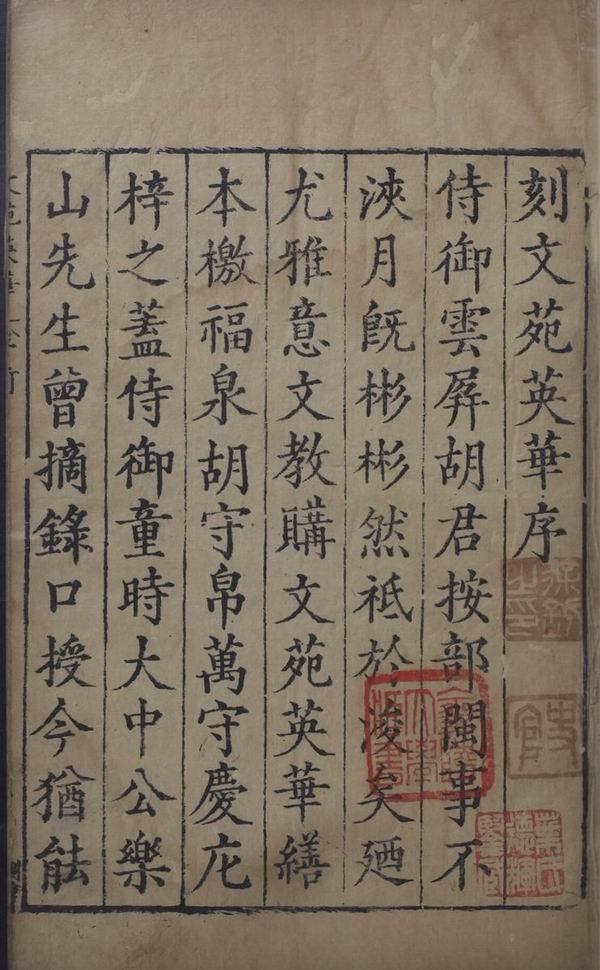 刻文苑英華序
侍御雲屏胡君按部閩事不
浹月既彬彬然祗於浚矣廼
尤雅意文教購文苑英華繕
本檄福泉胡守帛萬守慶庀
梓之蓋侍御童時大中公樂
山先生曾摘錄口授今猶能